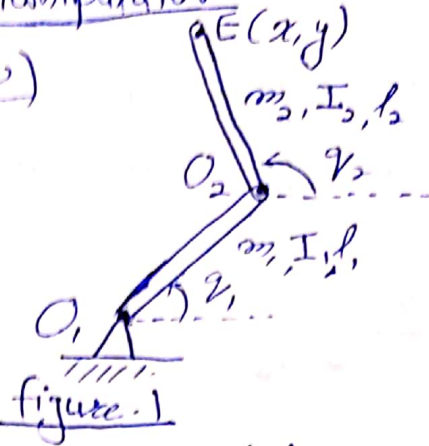 E(x,y)
2)
m₂, I₂, l₂
O₂
q₂
m₁, I₁, l₁
q₁
O₁
figure.1